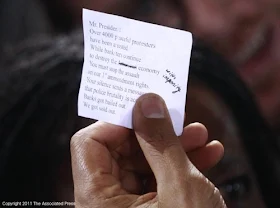 Mr. President:
Over 4000 peaceful protesters
have been arrested.
While banksters continue
to destroy the economy
You must stop the assault
on our 1st ammendment rights.
Your silence sends a message
that police brutality is
Banks got bailed out.
We got sold out.
Copyright 2011 The Associated Press